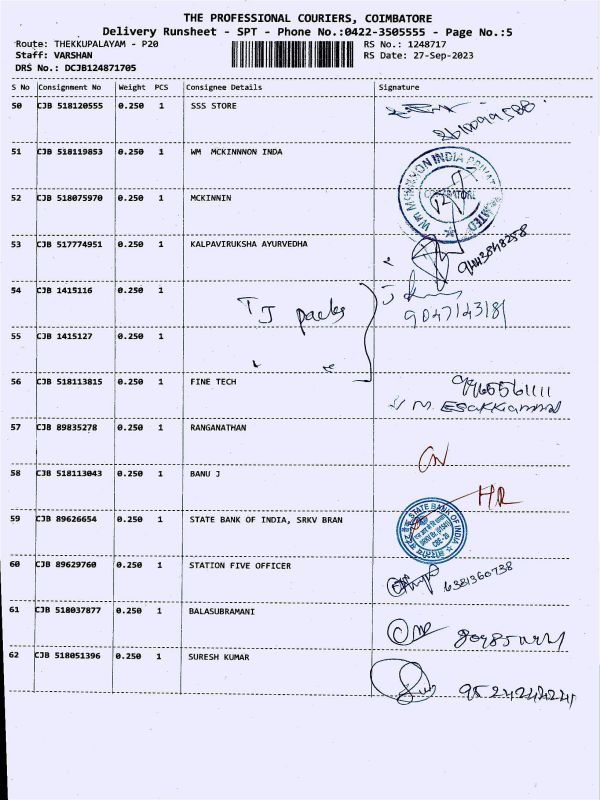 THE PROFESSIONAL COURIERS, COIMBATORE
Delivery Runsheet - SPT - Phone No.:0422-3505555 - Page No.:5
Route: THEKKUPALAYAM - P20 RS No.: 1248717
Staff: VARSHAN RS Date: 27-Sep-2023
DRS No.: DCJB124871705
S No Consignment No Weight PCS Consignee Details Signature
50 CJB 518120555 0.250 1 SSS STORE
51 CJB 518119853 0.250 1 WM MCKINNNON INDA
52 CJB 518075970 0.250 1 MCKINNIN
53 CJB 517774951 0.250 1 KALPAVIRUKSHA AYURVEDHA
54 CJB 1415116 0.250 1
TJ packs
9047143181
55 CJB 1415127 0.250 1
56 CJB 518113815 0.250 1 FINE TECH
9965561111
M. Esakkiammal
57 CJB 89835278 0.250 1 RANGANATHAN
58 CJB 518113043 0.250 1 BANU J
HR
59 CJB 89626654 0.250 1 STATE BANK OF INDIA, SRKV BRAN
STATE BANK OF INDIA
60 CJB 89629760 0.250 1 STATION FIVE OFFICER
6381360738
61 CJB 518037877 0.250 1 BALASUBRAMANI
62 CJB 518051396 0.250 1 SURESH KUMAR